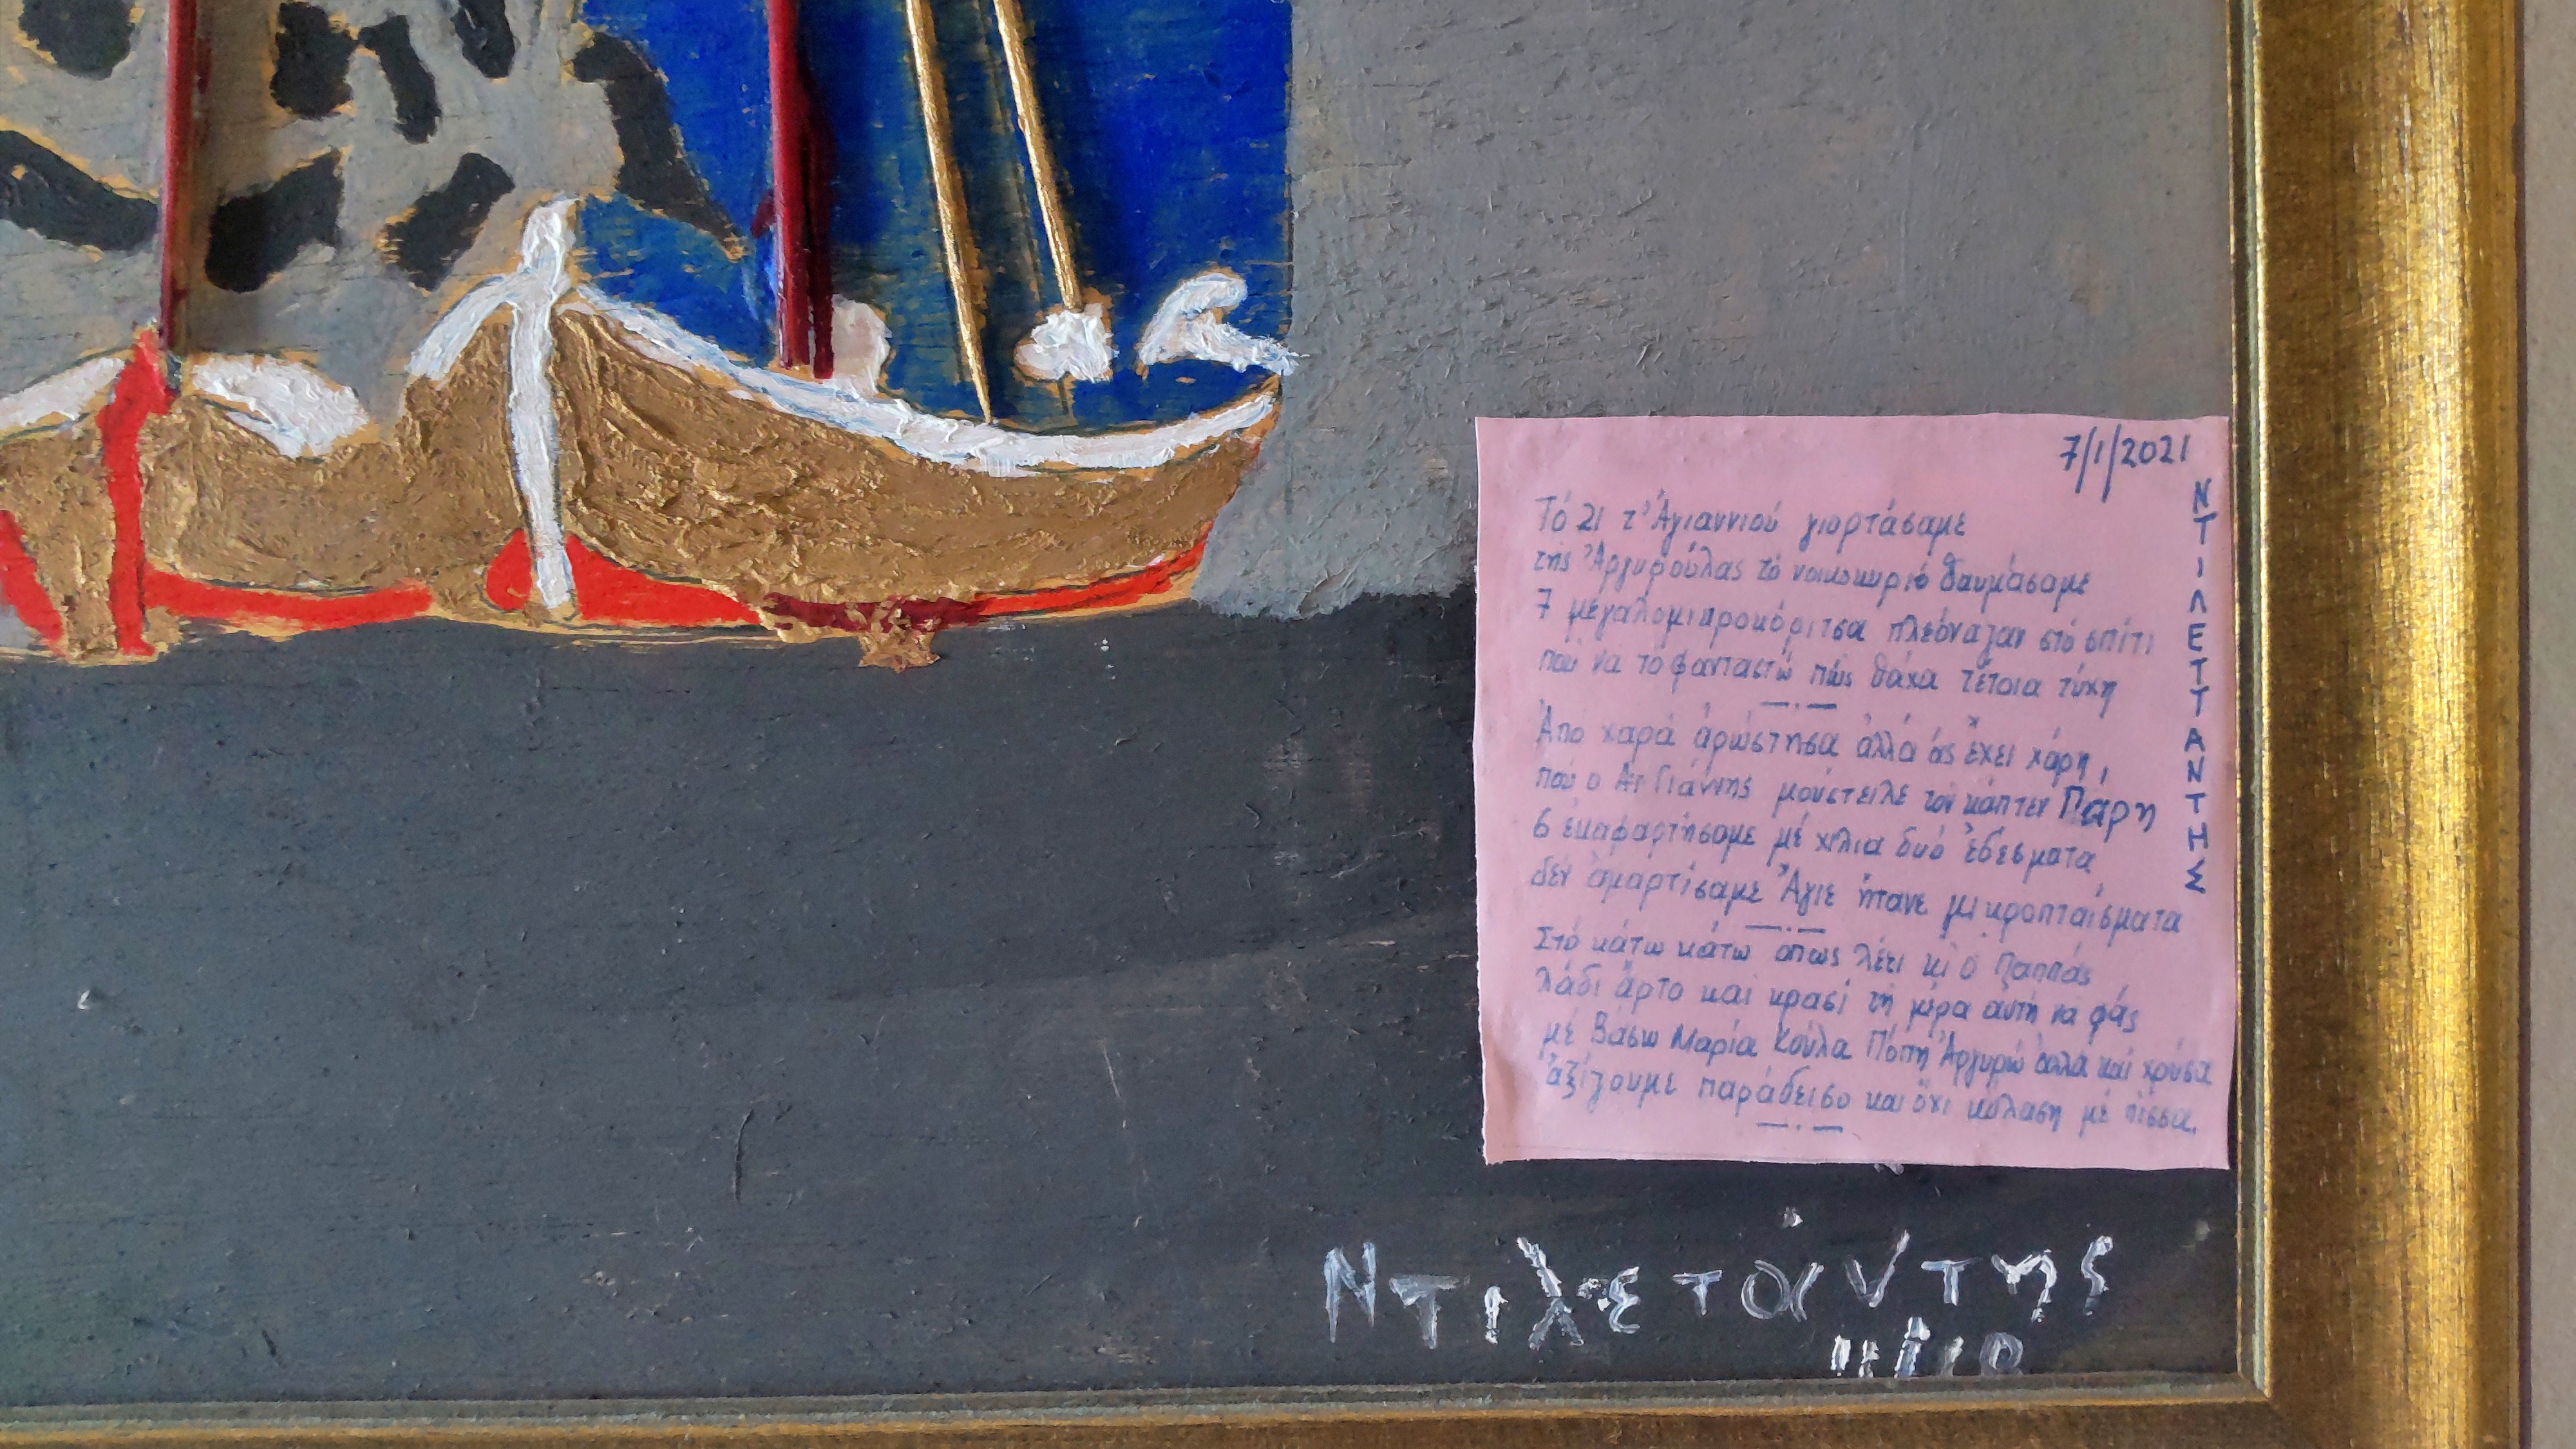 7/1/2021
Τό 21 τ' Ἁγιαννιού γιορτάσαμε
τῆς Ἀργυρούλας τό νοικοκυριό θαυμάσαμε
7 μεγαλομικροκόριτσα πλεόναζαν στό σπίτι
πού να το φανταστώ πώς θάχα τέτοια τύχη
Ἀπο χαρά ἀρώστησα ἀλλά ἄς ἔχει χάρη,
πού ο Αϊ Γιάννης μούστειλε τον κάπτεν Πάρη
6 ἐκαφαρτήσαμε μέ χίλια δυό ἐδέσματα
δέν ἁμαρτίσαμε Ἅγιε ήτανε μικροπταίσματα
Στό κάτω κάτω όπως λέει κι ὁ Παππάς
λάδι ἄρτο και κρασί τη μέρα αυτή να φάς
μέ Βάσω Μαρία Κούλα Πόπη Ἀργυρώ ἀλλά καί χρύσα
ἀξίζουμε παράδεισο και ὄχι κόλαση μέ πίσσα.
ΝΤΙΛΕΤΤΑΝΤΗΣ
Ντιλετάντης